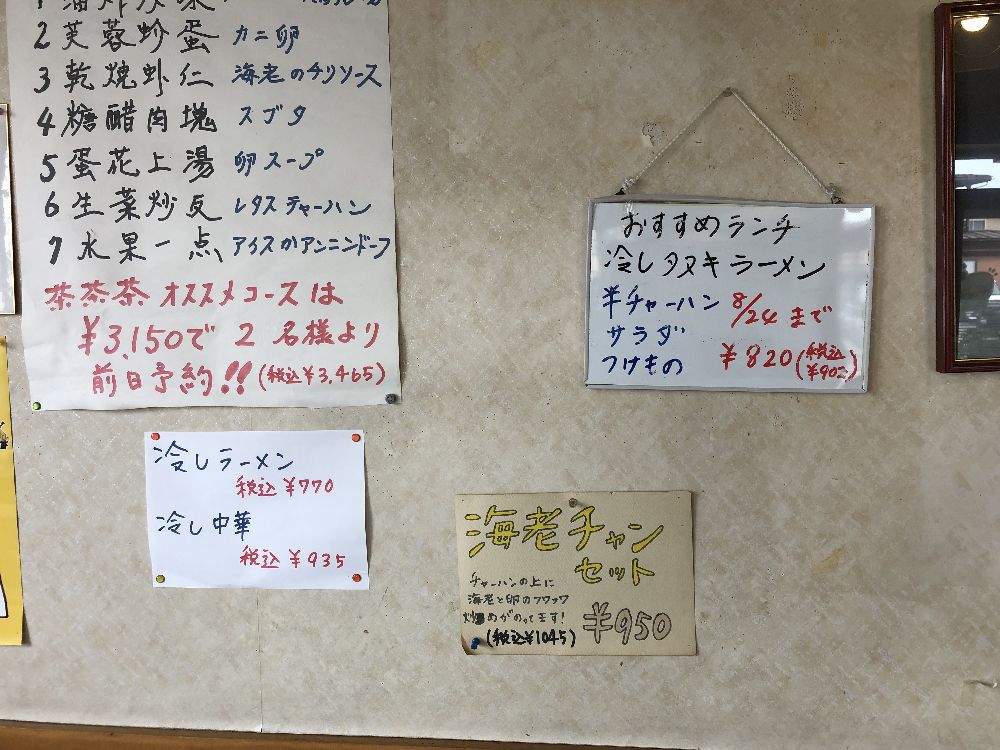 2 芙蓉炒蛋 カニ卵
3 乾焼虾仁 海老のチリソース
4 糖醋肉塊 スブタ
5 蛋花上湯 卵スープ
6 生菜炒反 レタスチャーハン
7 水果一点 アイスかアンニンドーフ
茶茶茶 オススメコースは
¥3,150で 2名様より
前日予約!! (税込¥3,465)
おすすめランチ
冷しタヌキラーメン
半チャーハン 8/24まで
サラダ
つけもの ¥820(税込¥902)
冷しラーメン
税込¥770
冷し中華
税込¥935
海老チャン
セット
チャーハンの上に
海老と卵のフワフワ
炒めがのってます!
¥950
(税込¥1045)